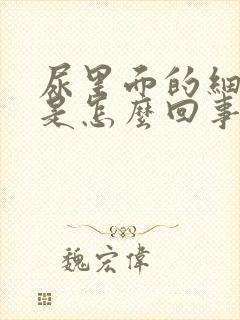 尿里而的細
是怎麼回事
魏宏偉